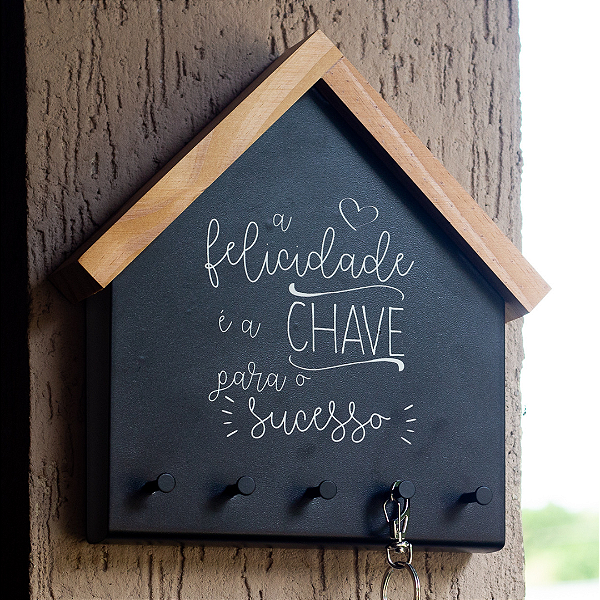 a
felicidade
é a CHAVE
para o
sucesso